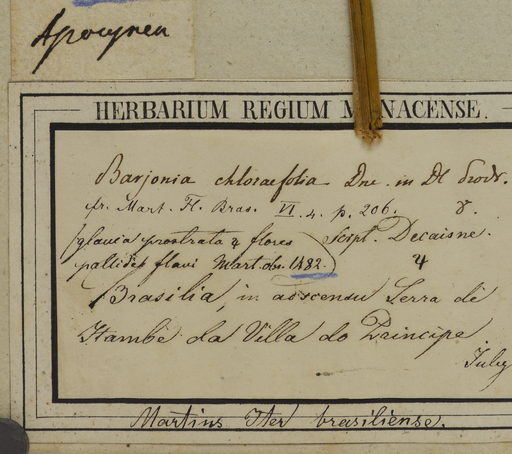 Apocynea
HERBARIUM REGIUM MONACENSE.
Barjonia chloraefolia Dne. in DC Prodr.
fr. Mart. Fl. Bras. VI. 4. p. 206. 8.
(glauca prostrata ♃ flores Script. Decaisne.
pallide flavi Mart. obs. 1482.) ♃
Brasilia, in adscensu Serra de
Itambé da Villa do Principe
July
Martius Iter brasiliense.